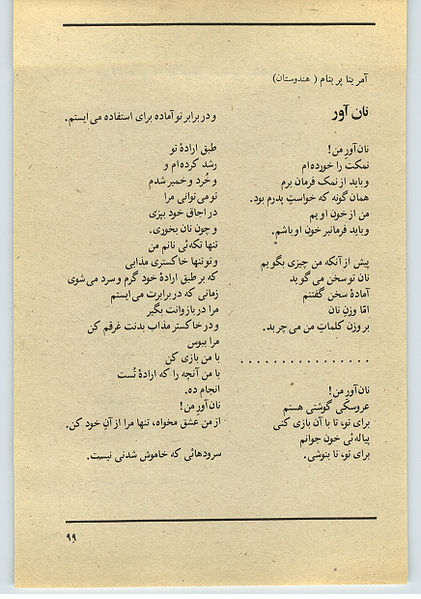 آمریتا پریتام ( هندوستان)
نان آور
نان‌آور من!
نمکت را خورده‌ام
و باید از نمک فرمان برم
همان گونه که خواستِ پدرم بود.
من از خون اویم
و باید فرمانبر خون او باشم.
پیش از آنکه من چیزی بگویم
نان تو سخن می‌گوید
آمادهٔ سخن گفتنم
امّا وزنِ نان
بر وزن کلماتِ من می‌چربد.
. . . . . . . . . . . . . . .
نان‌آور من!
عروسکی گوشتی هستم
برای تو، تا با آن بازی کنی
پیاله‌ئی خون جوانم
برای تو، تا بنوشی.
و در برابر تو آماده برای استفاده می‌ایستم.
طبق ارادهٔ تو
رشد کرده‌ام و
و خُرد و خمیر شدم
تو می‌توانی مرا
در اجاق خود بپزی
و چون نان بخوری.
تنها تکه‌ئی نانم من
و تو تنها خاکستری مذابی
که بر طبق ارادهٔ خود گرم و سرد می‌شوی
زمانی که در برابرت می‌ایستم
مرا در بازوانت بگیر
و در خاکستر مذاب بدنت غرقم کن
مرا ببوس
با من بازی کن
با من آنچه را که ارادهٔ تُست
انجام ده.
نان‌آور من!
از من عشق مخواه، تنها مرا از آنِ خود کن.
سرودهائی که خاموش شدنی نیست.
۹۹